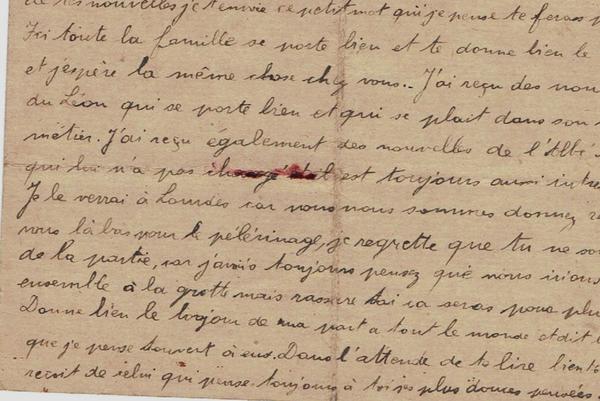 de tes nouvelles je t'envoie ce petit mot qui je pense te feras
Ici toute la famille se porte bien et te donne bien le
et j'espère la même chose chez vous.. J'ai reçu des nou
du Léon qui se porte bien et qui se plait dans son
métier. J'ai reçu également des nouvelles de l'Abbé
qui lui n'a pas changé il est toujours aussi
Je le verrai à Lourdes car nous nous sommes donnez
vous là bas pour le pélérinage, je regrette que tu ne so
de la partie, car j'avais toujours pensez que nous irions
ensemble à la grotte mais rassure toi ça seras pour plu
Donne bien le bonjour de ma part a tout le monde et dit
que je pense souvent à eux. Dans l'attende de te lire bientô
reçoit de celui qui pense toujours à toi ses plus douces pensées.